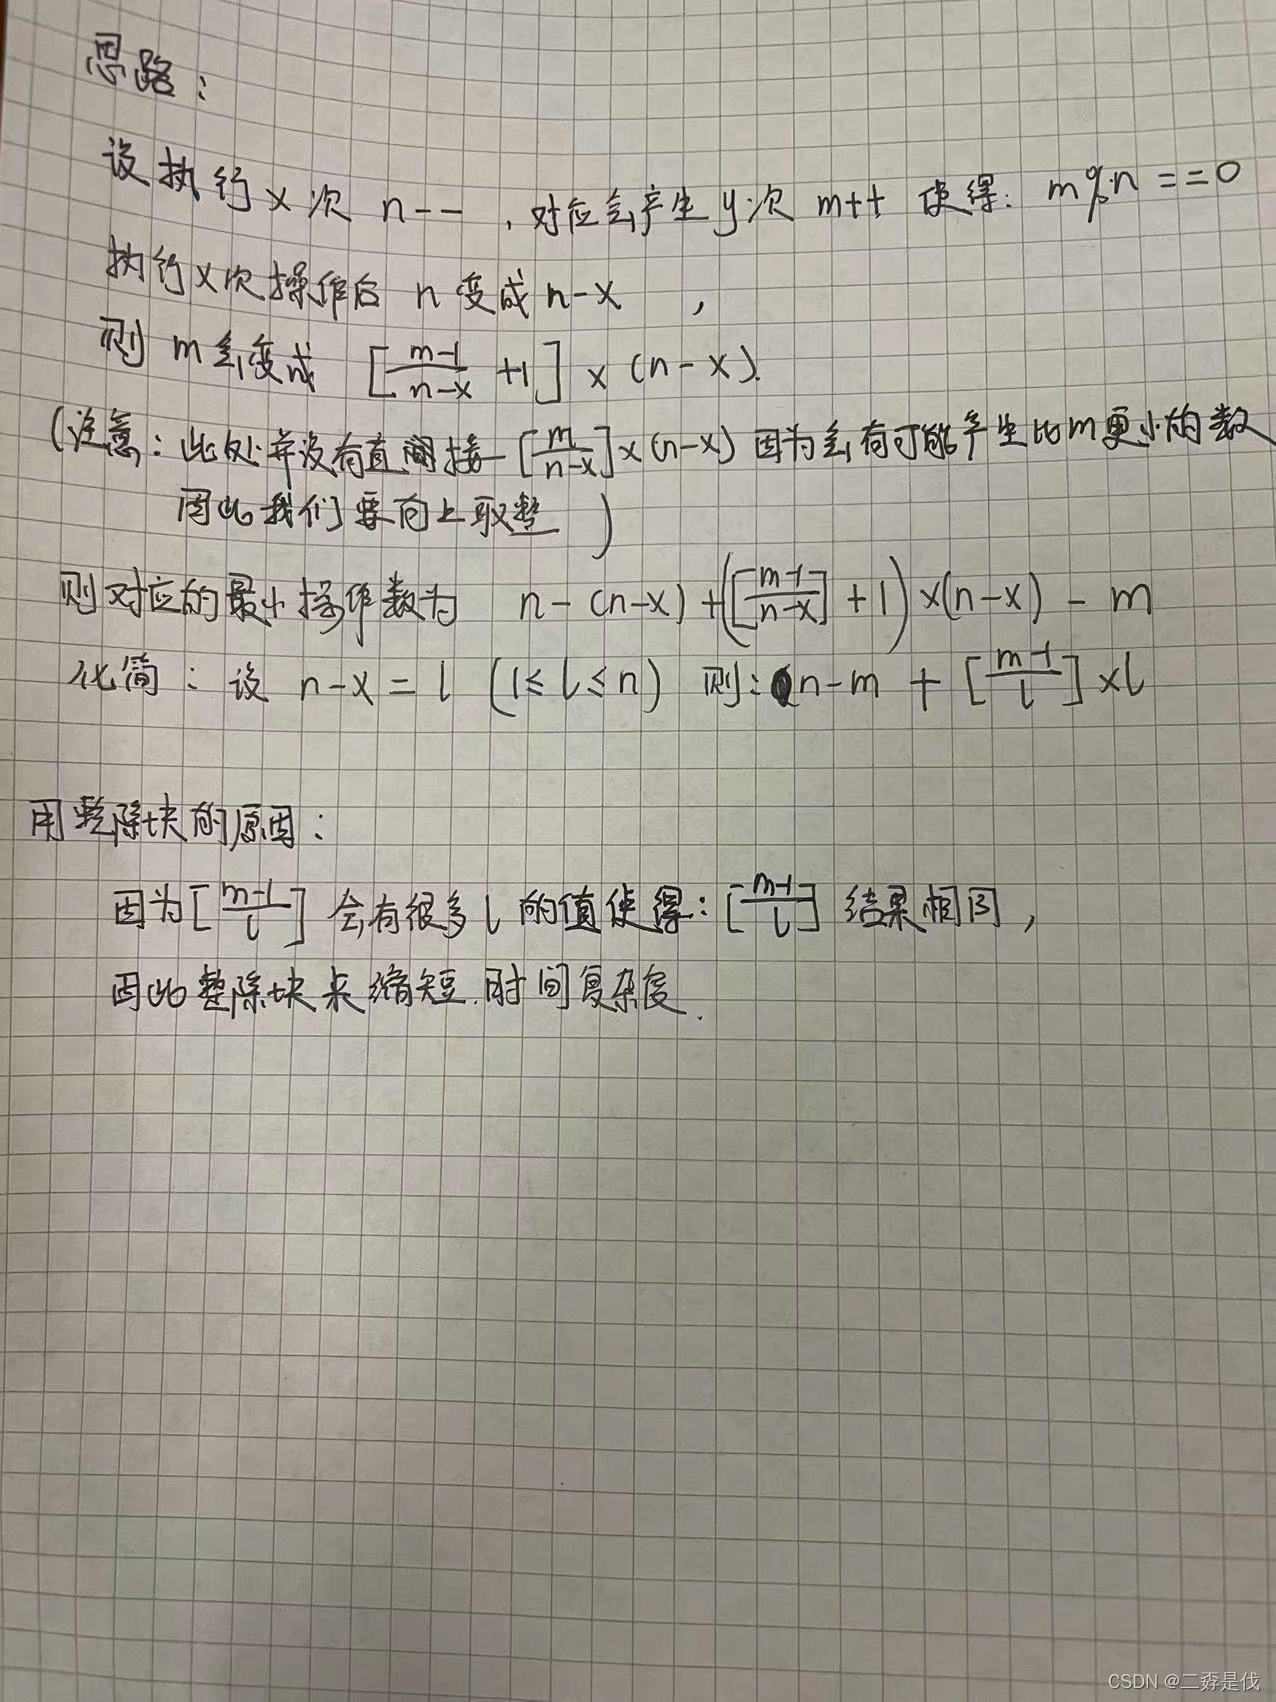 思路：
设执行 x 次 n-- ，对应会产生 y 次 m++ 使得：m%n==0
执行 x 次操作后 n 变成 n-x ，
则 m 会变成 [\frac{m-1}{n-x} +1] × (n-x).
(注意：此处并没有直接 [\frac{m}{n-x}]×(n-x) 因为会有可能产生比m更小的数
因此我们要向上取整 )
则对应的最小操作数为 n-(n-x)+([\frac{m-1}{n-x}]+1)×(n-x)-m
化简：设 n-x=l (1≤l≤n) 则：n-m+[\frac{m-1}{l}]×l
用整除块的原因：
因为[\frac{m-1}{l}] 会有很多 l 的值使得：[\frac{m-1}{l}] 结果相同，
因此整除块来缩短时间复杂度.
CSDN @二孬是伐